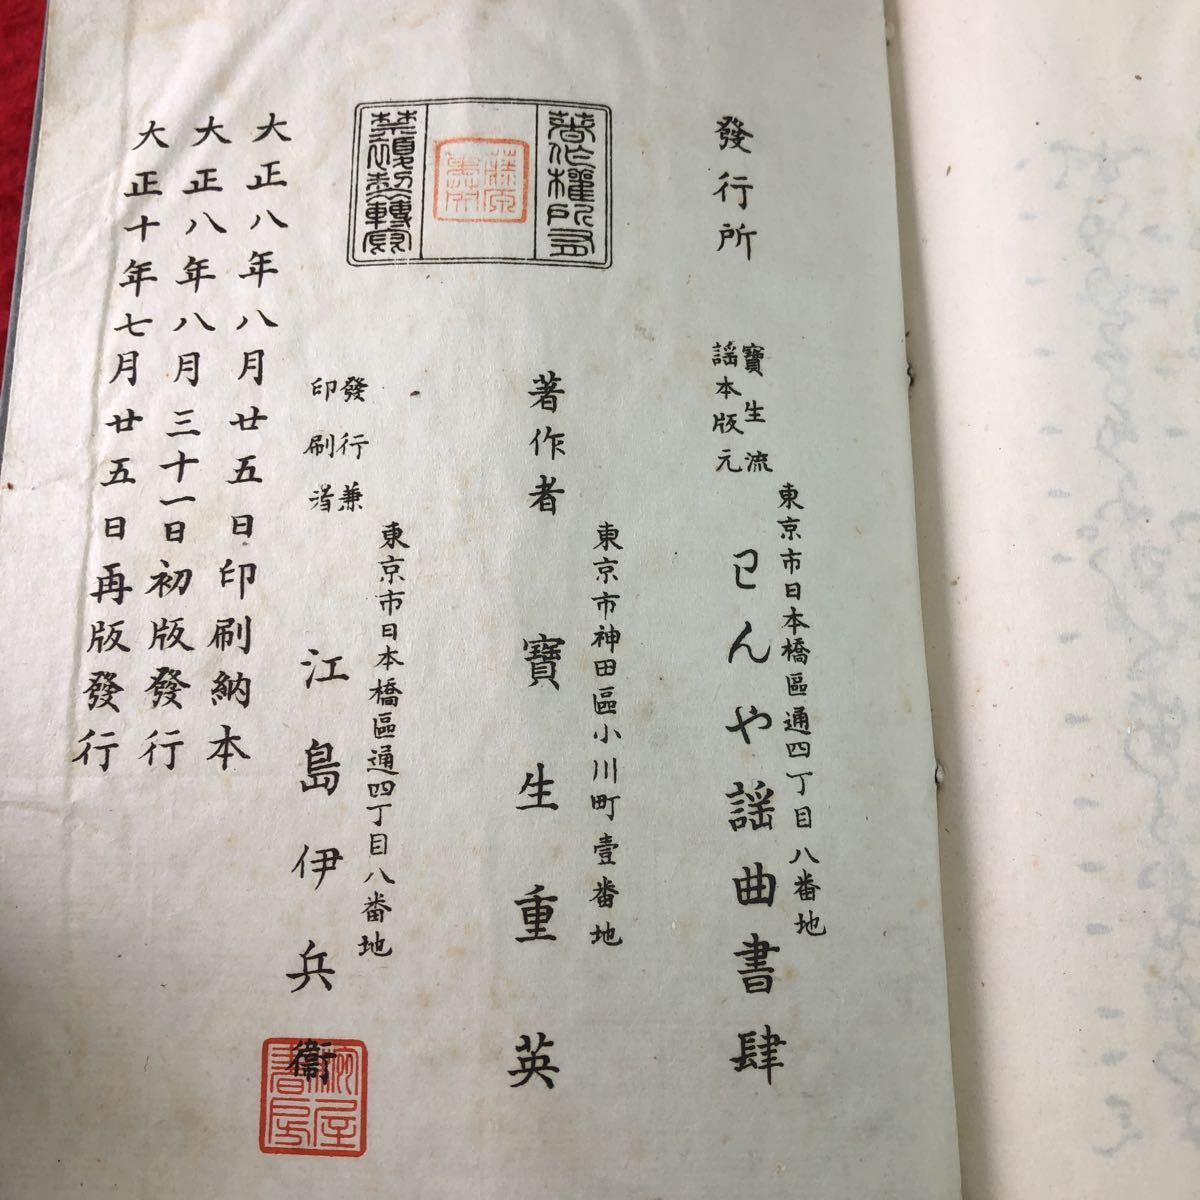 發行所
寶生流
謠本版元
東京市日本橋區通四丁目八番地
わんや謠曲書肆
著作權所有
禁複製轉寫
著作者
東京市神田區小川町壹番地
寶生重英
發行兼
印刷者
東京市日本橋區通四丁目八番地
江島伊兵衞
大正八年八月廿五日印刷納本
大正八年八月三十一日初版發行
大正十年七月廿五日再版發行